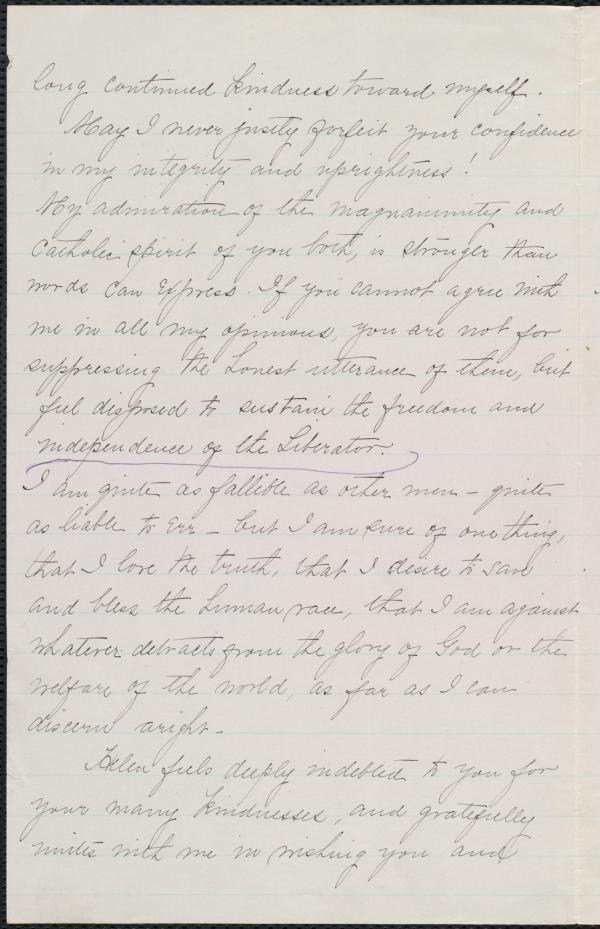 long continued kindness toward myself.
May I never justly forfeit your confidence
in my integrity and uprightness!
My admiration of the magnanimity and
Catholic spirit of you both, is stronger than
words can Express. If you cannot agree with
me in all my opinions, you are not for
suppressing the honest utterance of them, but
feel disposed to sustain the freedom and
independence of the Liberator.
I am quite as fallible as other men - quite
as liable to Err - but I am sure of one thing,
that I love the truth, that I desire to save
and bless the human race, that I am against
whatever detracts from the glory of God or the
welfare of the world, as far as I can
discern aright -
Helen feels deeply indebted to you for
your many kindnesses, and gratefully
unites with me in wishing you and